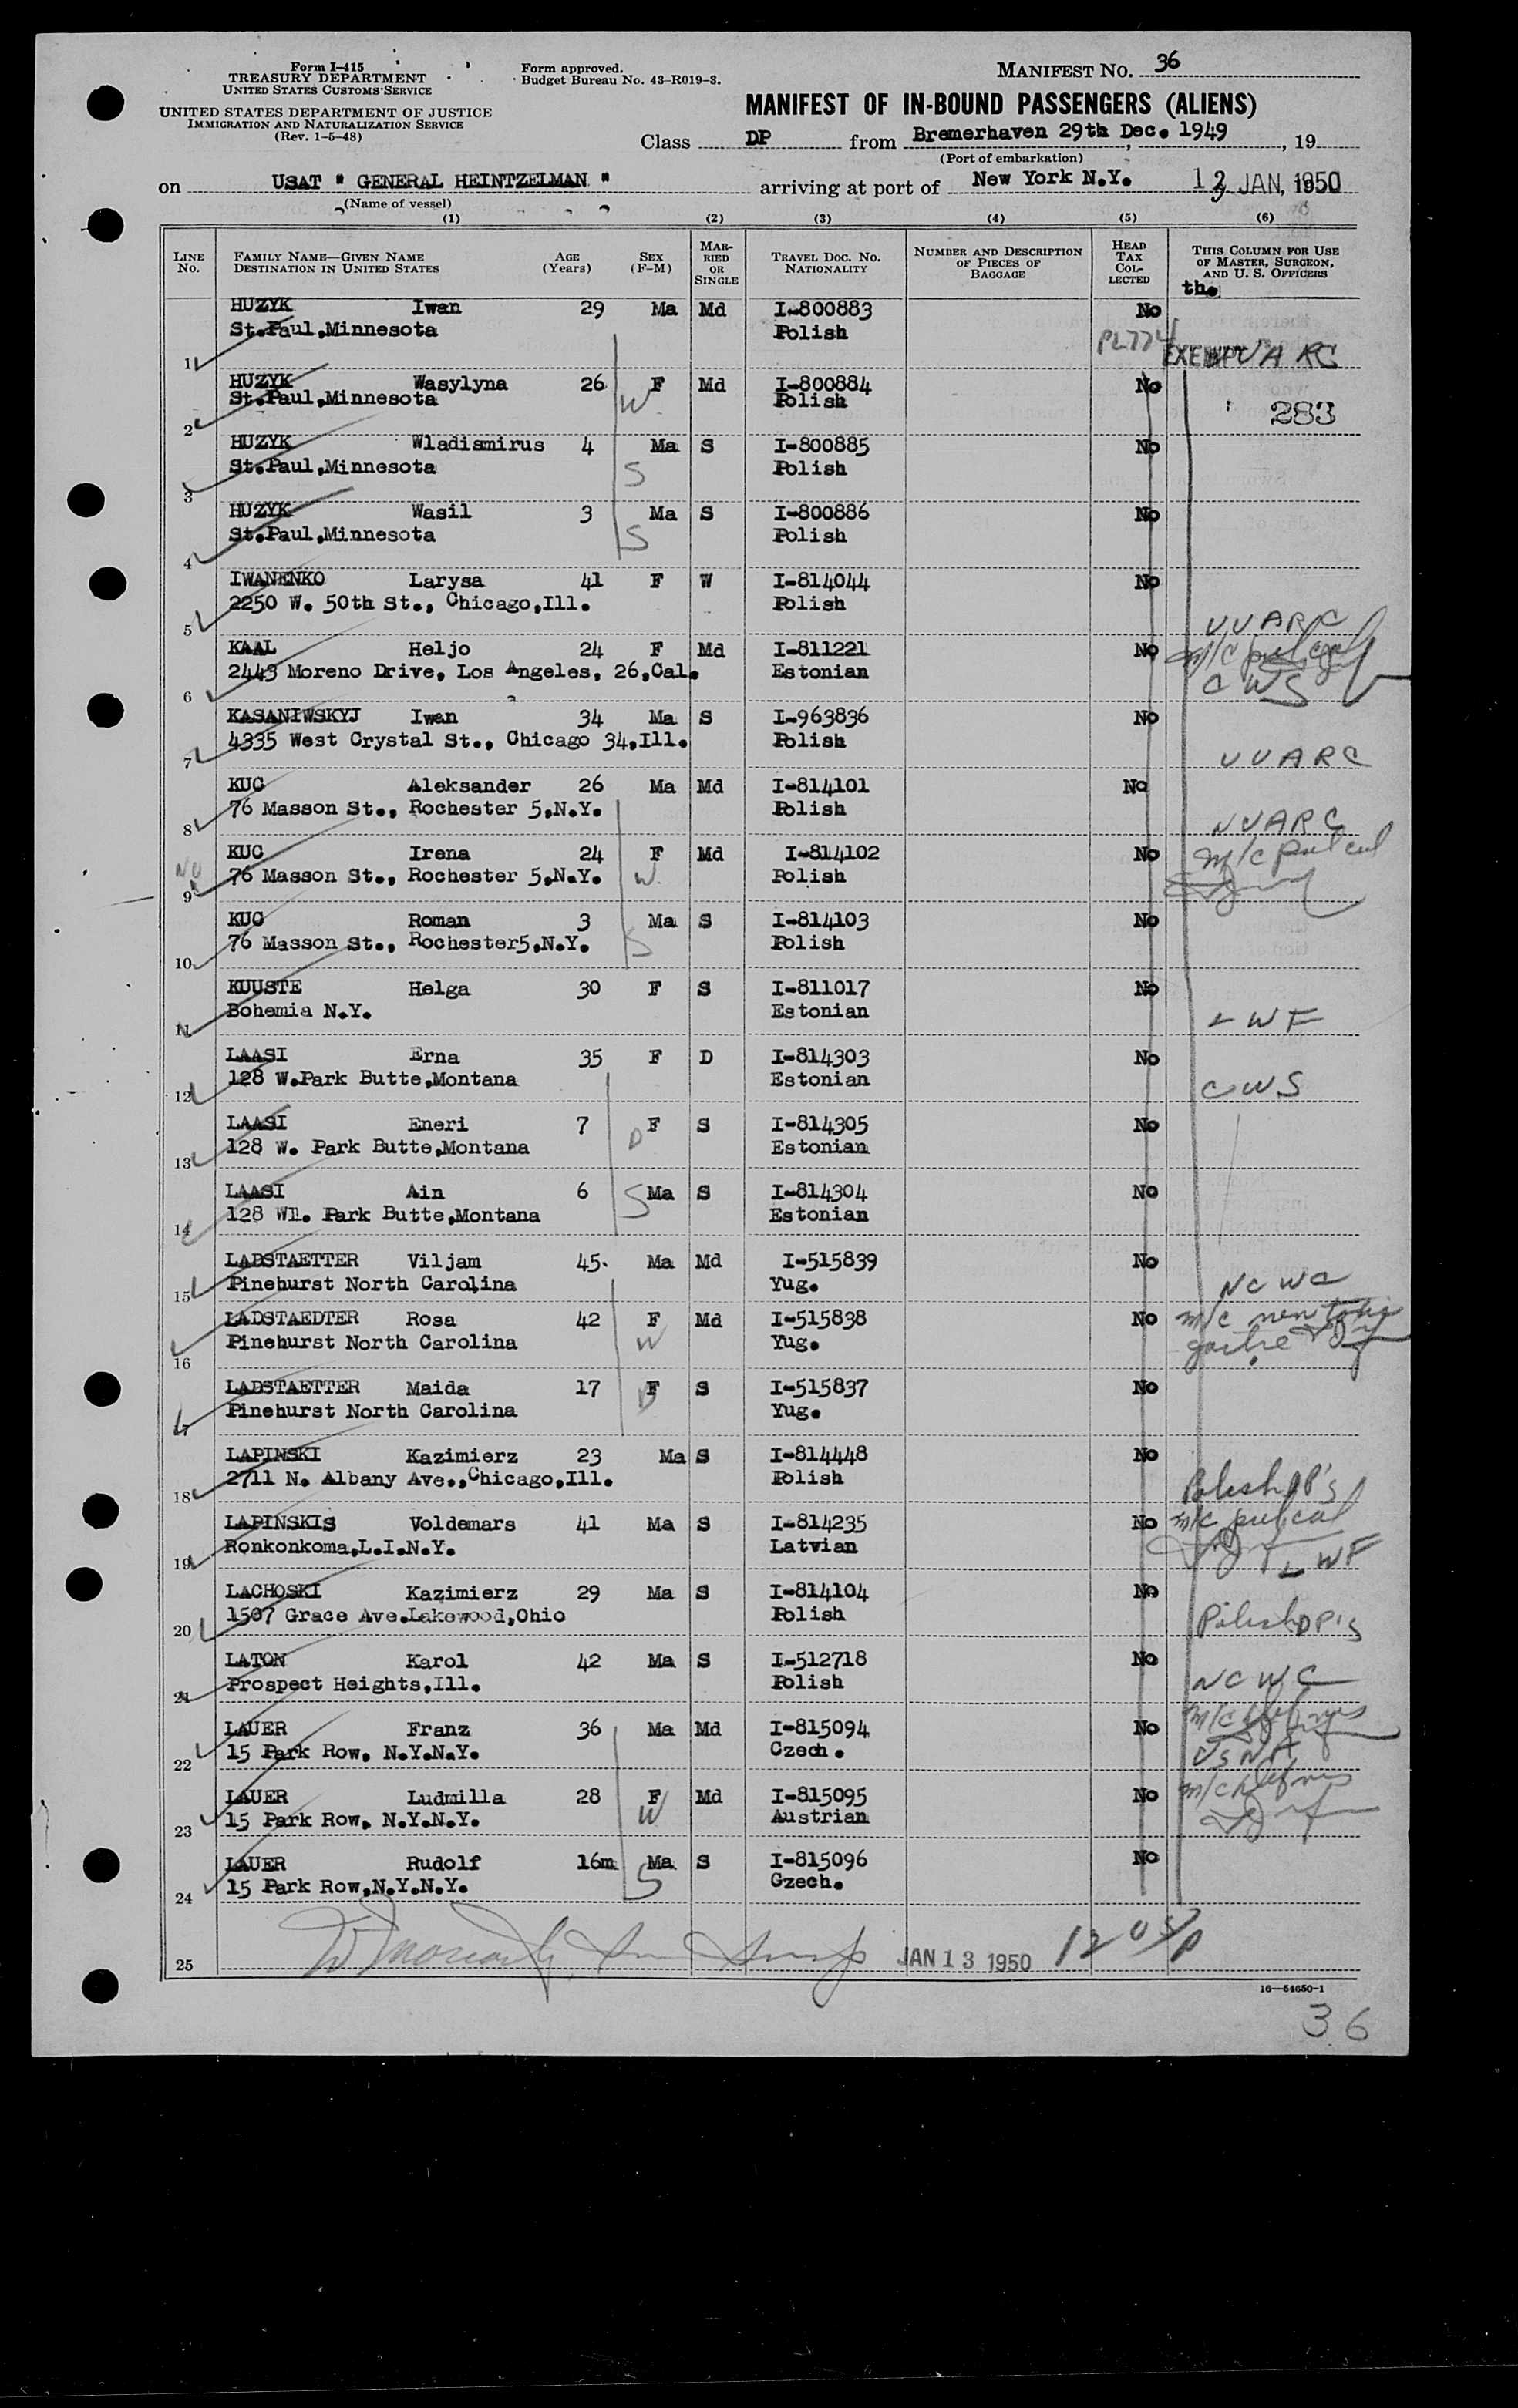 Form I-415
TREASURY DEPARTMENT
UNITED STATES CUSTOMS SERVICE
UNITED STATES DEPARTMENT OF JUSTICE
IMMIGRATION AND NATURALIZATION SERVICE
(Rev. 1-5-48)
Form approved.
Budget Bureau No. 43-R019-3.
MANIFEST NO. 36
MANIFEST OF IN-BOUND PASSENGERS (ALIENS)
Class DP from Bremerhaven 29th Dec. 1949, 19
(Port of embarkation)
on USAT " GENERAL HEINTZELMAN " arriving at port of New York N.Y. 13 JAN, 1950
(Name of vessel)
(1) (2) (3) (4) (5) (6)
LINE No. FAMILY NAME—GIVEN NAME DESTINATION IN UNITED STATES AGE (Years) SEX (F-M) MARRIED OR SINGLE TRAVEL DOC. NO. NATIONALITY NUMBER AND DESCRIPTION OF PIECES OF BAGGAGE HEAD TAX COLLECTED THIS COLUMN FOR USE OF MASTER, SURGEON, AND U. S. OFFICERS
the
HUZYK Iwan 29 Ma Md I-800883 No
1 St.Paul,Minnesota Polish PL774 EXEMPT UUARC
HUZYK Wasylyna 26 F Md I-800884 No
2 St.Paul,Minnesota W Polish 283
HUZYK Wladismirus 4 Ma S I-800885 No
3 St.Paul,Minnesota S Polish
HUZYK Wasil 3 Ma S I-800886 No
4 St.Paul,Minnesota S Polish
IWANENKO Larysa 41 F W I-814044 No
5 2250 W. 50th St., Chicago,Ill. Polish UUARC
KAAL Heljo 24 F Md I-811221 No m/c pul cal
6 2443 Moreno Drive, Los Angeles, 26,Cal. Estonian CWS
KASANIWSKYJ Iwan 34 Ma S I-963836 No
7 4335 West Crystal St., Chicago 34,Ill. Polish UUARC
KUC Aleksander 26 Ma Md I-814101 No
8 76 Masson St., Rochester 5,N.Y. Polish UUARC
KUC Irena 24 F Md I-814102 No m/c pul cal
9 76 Masson St., Rochester 5,N.Y. W Polish
KUC Roman 3 Ma S I-814103 No
10 76 Masson St., Rochester5,N.Y. S Polish
KUUSTE Helga 30 F S I-811017 No
11 Bohemia N.Y. Estonian LWF
LAASI Erna 35 F D I-814303 No
12 128 W.Park Butte,Montana Estonian CWS
LAASI Eneri 7 F S I-814305 No
13 128 W. Park Butte,Montana D Estonian
LAASI Ain 6 S Ma S I-814304 No
14 128 Wl. Park Butte,Montana Estonian
LADSTAETTER Viljam 45. Ma Md I-515839 No
15 Pinehurst North Carolina Yug. NCWC
LADSTAEDTER Rosa 42 F Md I-515838 No m/c
16 Pinehurst North Carolina W Yug.
LADSTAETTER Maida 17 F S I-515837 No
Pinehurst North Carolina D Yug.
LAPINSKI Kazimierz 23 Ma S I-814448 No
18 2711 N. Albany Ave.,Chicago,Ill. Polish Polish DP's
LAPINSKIS Voldemars 41 Ma S I-814235 No m/c pul cal
19 Ronkonkoma,L.I.N.Y. Latvian LWF
LACHOSKI Kazimierz 29 Ma S I-814104 No
20 1507 Grace Ave.Lakewood,Ohio Polish Polish DP's
LATON Karol 42 Ma S I-512718 No
21 Prospect Heights,Ill. Polish NCWC
LAUER Franz 36 Ma Md I-815094 No m/c
22 15 Park Row, N.Y.N.Y. Czech. USNA
LAUER Ludmilla 28 F Md I-815095 No m/c
23 15 Park Row, N.Y.N.Y. W Austrian
LAUER Rudolf 16m Ma S I-815096 No
24 15 Park Row,N.Y.N.Y. S Czech.
25 JAN 13 1950
16—54650-1
36